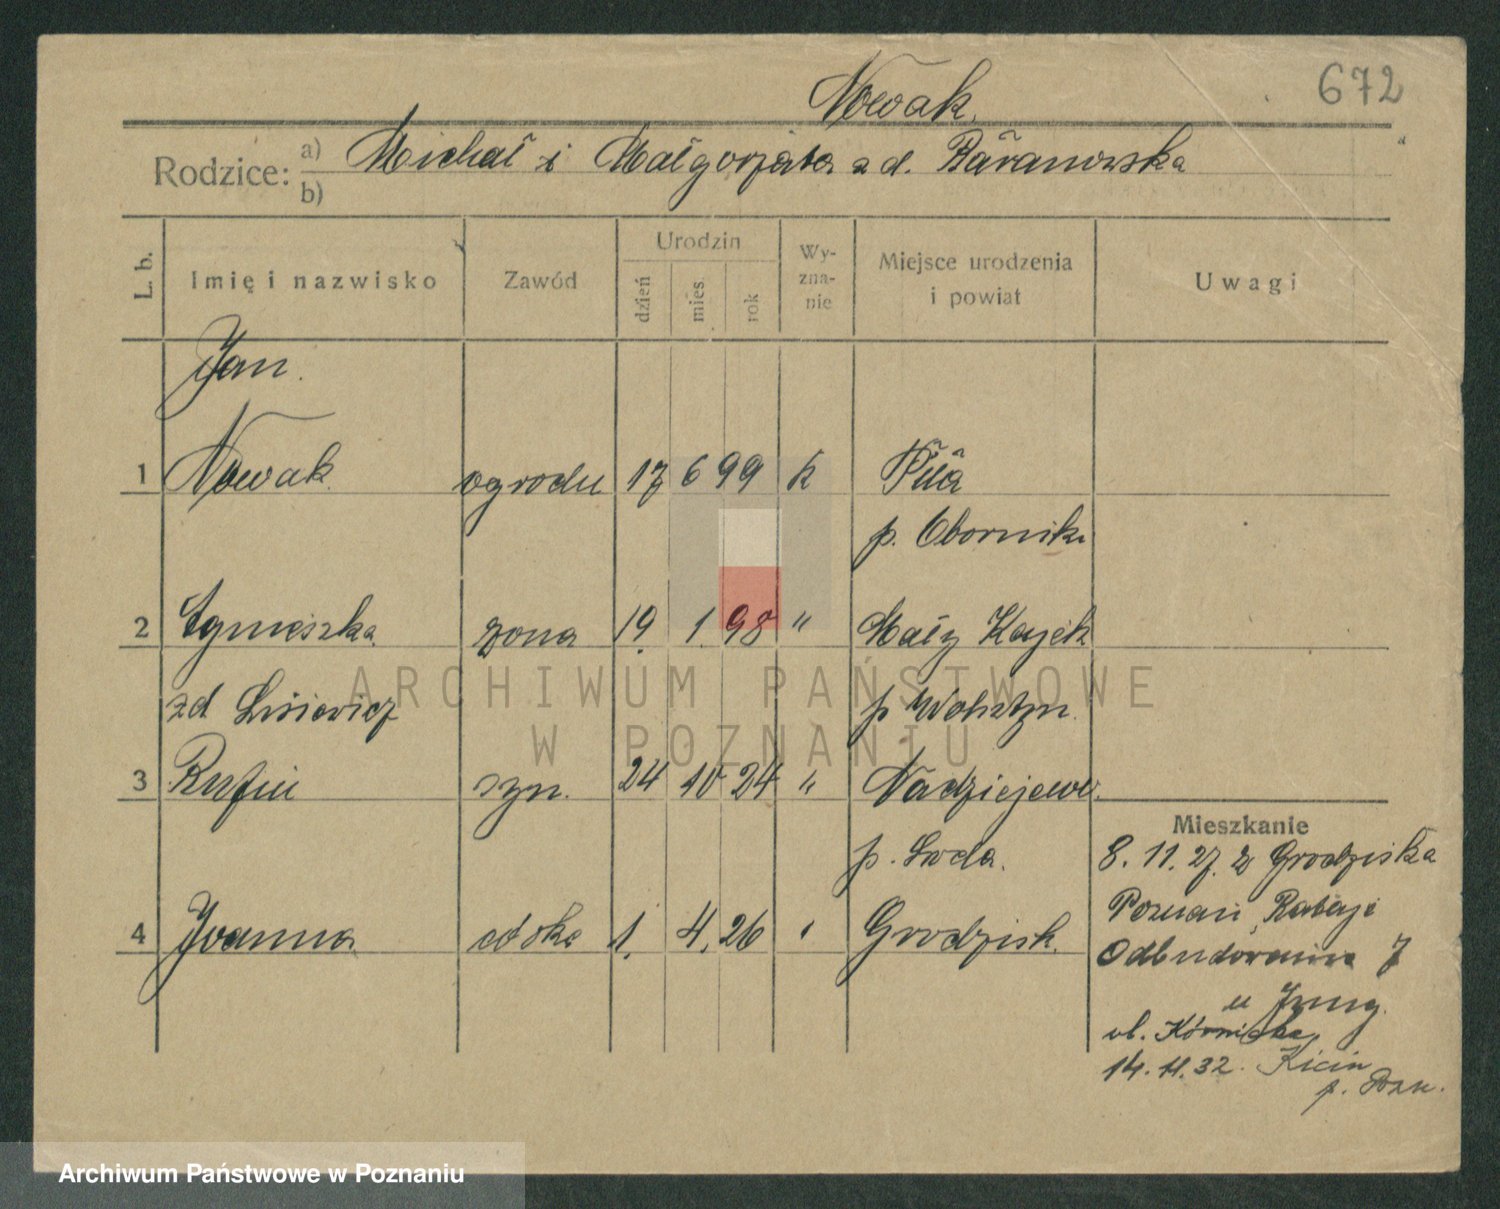 672
Nowak
Rodzice: a) Michał i Małgorzata z d. Baranowska
b)
L. b. Imię i nazwisko Zawód Urodzin dzień mies. rok Wyznanie Miejsce urodzenia i powiat Uwagi
Jan
1 Nowak ogrodn 17 6 99 k Piła
p. Oborniki
2 Agnieszka żona 19. 1. 98 " Mały
zd Lisiewicz p Wolsztyn
3 syn. 24 10 24 " Nadziejewo
p. Środa.
Mieszkanie
8. 11. 27. z Grodziska
4 Joanna córka 1. 4. 26 " Grodzisk.
Poznań, Rataje
7
ul. Kórnicka
14. 11. 32. Kicin
p. Pozn.
ARCHIWUM PAŃSTWOWE
W POZNANIU
Archiwum Państwowe w Poznaniu